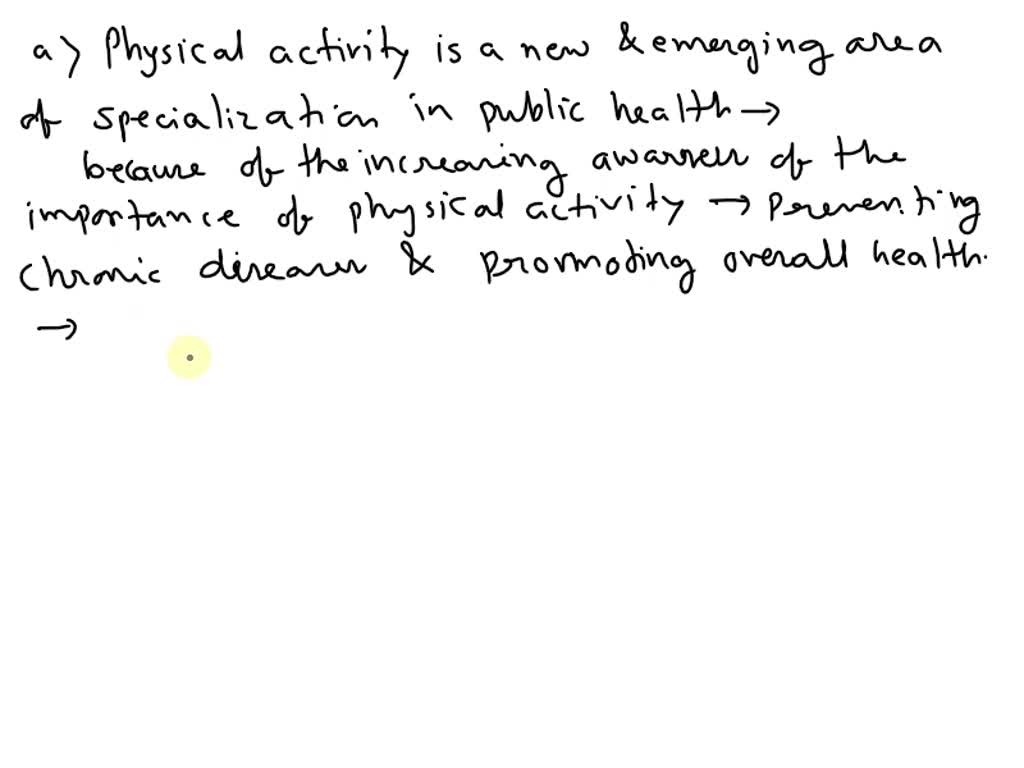 a) Physical activity is a new & emerging area
of specialization in public health →
because of the increasing awarren of the
importance of physical activity → preventing
chronic diseases & promoting overall health.
→